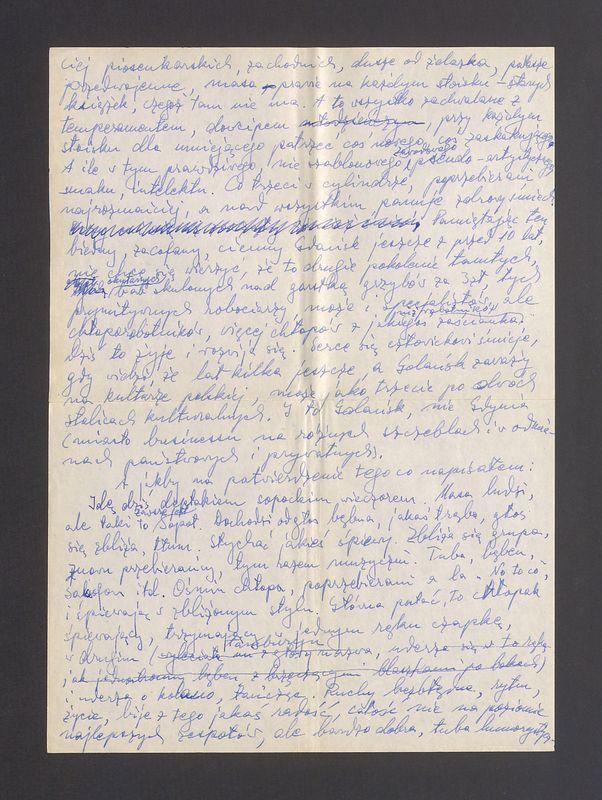 ciej piosenkarskich, zachodnich, dusze od żelazka, pałasze
przedwojenne, masa – prawie na każdym stoisku – starych
książek, czegóż tam nie ma. A to wszystko zachwalane z
temperamentem, dowcipem, przy każdym
stoisku dla umiejącego patrzeć coś nowego, coś zaskakującego.
A ile w tym prawdziwego, nie szablonowego, pseudo-artystycznego
smaku, intelektu. Co trzeci w cylindrze, poprzebierani
najrozmaiciej, a nad wszystkim panuje zdrowy śmiech.
Pamiętając ten
biedny, zacofany, ciemny Gdańsk jeszcze z przed 10 lat,
nie chce się wierzyć, że to drugie pokolenie tamtych,
bab skulonych nad garstką grzybów za 3 zł, tych
prymitywnych robociarzy, może i specjalistów, ale
chłoporobotników, więcej chłopów z jakiegoś zaścianka
niż robotników.
Dziś to żyje i rozwija się. Serce się człowiekowi śmieje,
gdy widzi, że lat kilka jeszcze, a Gdańsk zaważy
na kulturze polskiej, może jako trzecie po dwóch
stolicach kulturalnych. I to Gdańsk, nie Gdynia
(miasto businessu na różnych szczeblach i w odmia-
nach państwowych i prywatnych).
A jakby na potwierdzenie tego co napisałem:
Idę dziś deptakiem sopockim wieczorem. Masa ludzi,
ale taki to zawsze jest Sopot. Dochodzi odgłos bębna, jakaś trąba, głos
się zbliża, tłum. Słychać jakieś śpiewy. Zbliża się grupa,
znowu przebierańcy, tym razem muzyczni. Tuba, bęben,
saksofon itd. Ośmiu chłopa, poprzebierani a la "No to co",
i śpiewają w zbliżonym stylu. Główna postać, to chłopak
śpiewający, trzymający w jednym ręku czapkę,
w drugim tamburyn nazwa, uderza się w to ręką
jak
i uderza o kolano, tańcząc. Ruchy bezbłędne, rytm,
życie, bije z tego jakaś radość, całość nie na poziomie
najlepszych zespołów, ale bardzo dobra, tuba humorystycz-